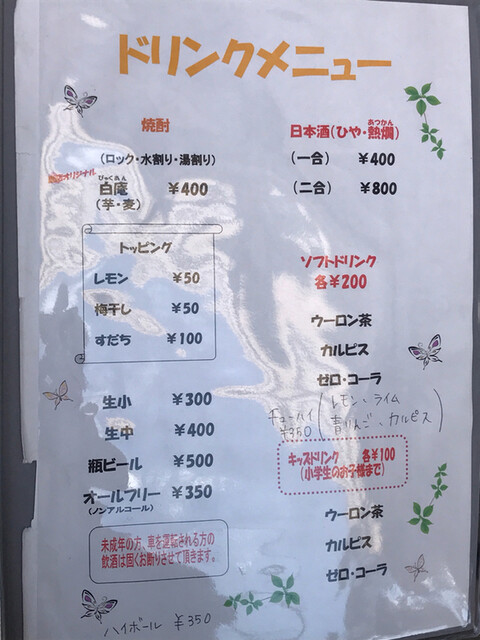 ドリンクメニュー
焼酎
(ロック・水割り・湯割り)
オリジナル
びゃくあん
白庵 ¥400
(芋・麦)
トッピング
レモン ¥50
梅干し ¥50
すだち ¥100
生小 ¥300
生中 ¥400
瓶ビール ¥500
オールフリー ¥350
(ノンアルコール)
未成年の方、車を運転される方の
飲酒は固くお断りさせて頂きます。
ハイボール ¥350
あつかん
日本酒(ひや・熱燗)
(一合) ¥400
(二合) ¥800
ソフトドリンク
各¥200
ウーロン茶
カルピス
ゼロ・コーラ
チューハイ ¥350 (レモン、ライム
青りんご、カルピス)
キッズドリンク 各¥100
(小学生のお子様まで)
ウーロン茶
カルピス
ゼロ・コーラ